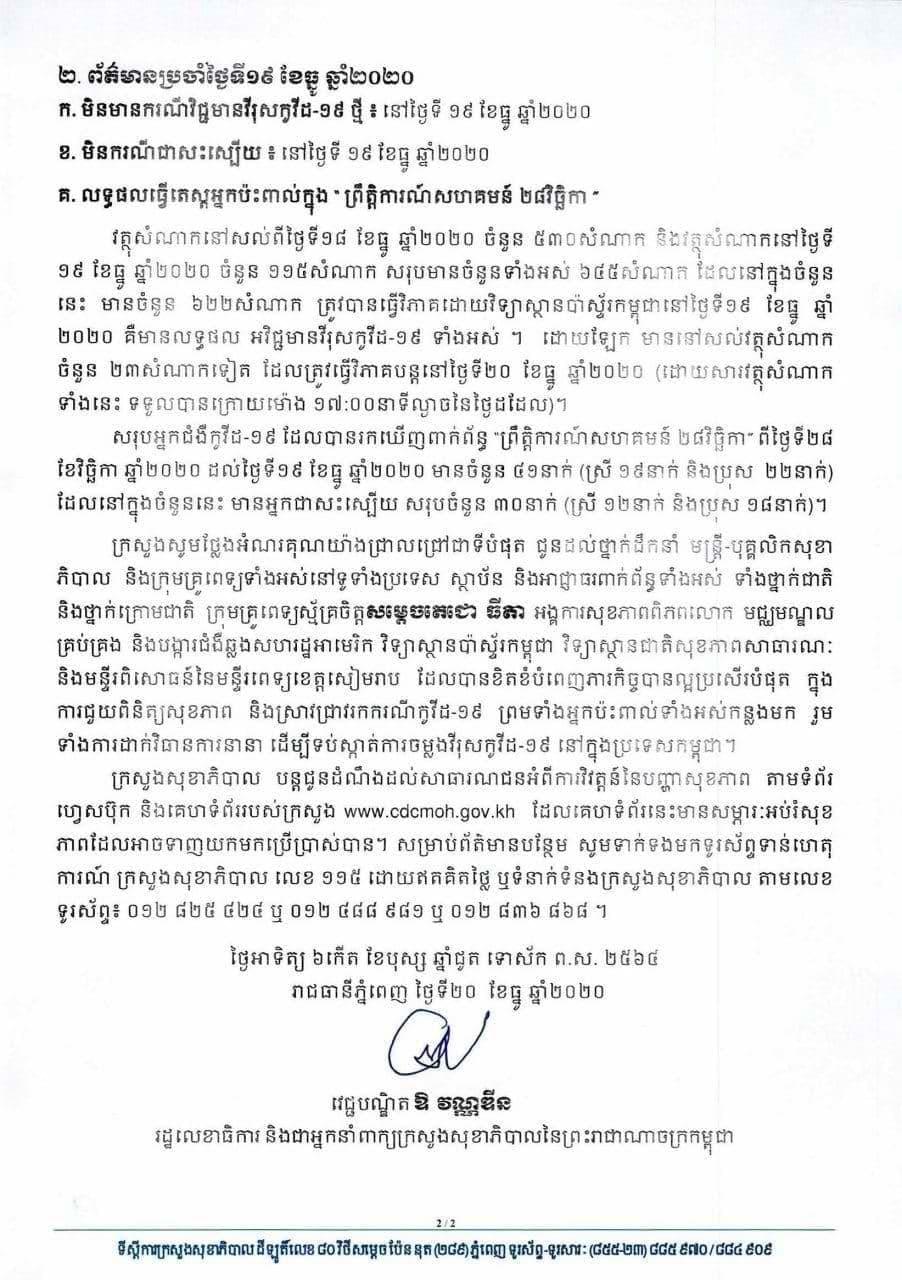 ២. ព័ត៌មានប្រចាំថ្ងៃទី១៩ ខែធ្នូ ឆ្នាំ២០២០
ក. មិនមានករណីវិជ្ជមានវីរុសកូវីដ-១៩ ថ្មី ៖ នៅថ្ងៃទី ១៩ ខែធ្នូ ឆ្នាំ២០២០
ខ. មិនករណីជាសះស្បើយ ៖ នៅថ្ងៃទី ១៩ ខែធ្នូ ឆ្នាំ២០២០
គ. លទ្ធផលធ្វើតេស្តអ្នកប៉ះពាល់ក្នុង “ ព្រឹត្តិការណ៍សហគមន៍ ២៨វិច្ឆិកា ”
វត្ថុសំណាកនៅសល់ពីថ្ងៃទី១៨ ខែធ្នូ ឆ្នាំ២០២០ ចំនួន ៥៣០សំណាក និងវត្ថុសំណាកនៅថ្ងៃទី
១៩ ខែធ្នូ ឆ្នាំ២០២០ ចំនួន ១១៥សំណាក សរុបមានចំនួនទាំងអស់ ៦៤៥សំណាក ដែលនៅក្នុងចំនួន
នេះ មានចំនួន ៦២២សំណាក ត្រូវបានធ្វើវិភាគដោយវិទ្យាស្ថានប៉ាស្ទ័រកម្ពុជានៅថ្ងៃទី១៩ ខែធ្នូ ឆ្នាំ
២០២០ គឺមានលទ្ធផល អវិជ្ជមានវីរុសកូវីដ-១៩ ទាំងអស់ ។ ដោយឡែក មាននៅសល់វត្ថុសំណាក
ចំនួន ២៣សំណាកទៀត ដែលត្រូវធ្វើវិភាគបន្តនៅថ្ងៃទី២០ ខែធ្នូ ឆ្នាំ២០២០ (ដោយសារវត្ថុសំណាក
ទាំងនេះ ទទួលបានក្រោយម៉ោង ១៧:០០នាទីល្ងាចនៃថ្ងៃដដែល)។
សរុបអ្នកជំងឺកូវីដ-១៩ ដែលបានរកឃើញពាក់ព័ន្ធ “ព្រឹត្តិការណ៍សហគមន៍ ២៨វិច្ឆិកា” ពីថ្ងៃទី២៨
ខែវិច្ឆិកា ឆ្នាំ២០២០ ដល់ថ្ងៃទី១៩ ខែធ្នូ ឆ្នាំ២០២០ មានចំនួន ៤១នាក់ (ស្រី ១៩នាក់ និងប្រុស ២២នាក់)
ដែលនៅក្នុងចំនួននេះ មានអ្នកជាសះស្បើយ សរុបចំនួន ៣០នាក់ (ស្រី ១២នាក់ និងប្រុស ១៨នាក់)។
ក្រសួងសូមថ្លែងអំណរគុណយ៉ាងជ្រាលជ្រៅជាទីបំផុត ជូនដល់ថ្នាក់ដឹកនាំ មន្ត្រី-បុគ្គលិកសុខា
ភិបាល និងក្រុមគ្រូពេទ្យទាំងអស់នៅទូទាំងប្រទេស ស្ថាប័ន និងអាជ្ញាធរពាក់ព័ន្ធទាំងអស់ ទាំងថ្នាក់ជាតិ
និងថ្នាក់ក្រោមជាតិ ក្រុមគ្រូពេទ្យស្ម័គ្រចិត្តសម្តេចតេជោ ធីតា អង្គការសុខភាពពិភពលោក មជ្ឈមណ្ឌល
គ្រប់គ្រង និងបង្ការជំងឺឆ្លងសហរដ្ឋអាមេរិក វិទ្យាស្ថានប៉ាស្ទ័រកម្ពុជា វិទ្យាស្ថានជាតិសុខភាពសាធារណៈ
និងមន្ទីរពិសោធន៍នៃមន្ទីរពេទ្យខេត្តសៀមរាប ដែលបានខិតខំបំពេញភារកិច្ចបានល្អប្រសើរបំផុត ក្នុង
ការជួយពិនិត្យសុខភាព និងស្រាវជ្រាវរកករណីកូវីដ-១៩ ព្រមទាំងអ្នកប៉ះពាល់ទាំងអស់កន្លងមក រួម
ទាំងការដាក់វិធានការនានា ដើម្បីទប់ស្កាត់ការចម្លងវីរុសកូវីដ-១៩ នៅក្នុងប្រទេសកម្ពុជា។
ក្រសួងសុខាភិបាល បន្តជូនដំណឹងដល់សាធារណជនអំពីការវិវត្តន៍នៃបញ្ហាសុខភាព តាមទំព័រ
ហ្វេសប៊ុក និងគេហទំព័ររបស់ក្រសួង www.cdcmoh.gov.kh ដែលគេហទំព័រនេះមានសម្ភារៈអប់រំសុខ
ភាពដែលអាចទាញយកមកប្រើប្រាស់បាន។ សម្រាប់ព័ត៌មានបន្ថែម សូមទាក់ទងមកទូរស័ព្ទទាន់ហេតុ
ការណ៍ ក្រសួងសុខាភិបាល លេខ ១១៥ ដោយឥតគិតថ្លៃ ឬទំនាក់ទំនងក្រសួងសុខាភិបាល តាមលេខ
ទូរស័ព្ទ៖ ០១២ ៨២៥ ៤២៤ ឬ ០១២ ៤៨៨ ៩៨១ ឬ ០១២ ៨៣៦ ៨៦៨ ។
ថ្ងៃអាទិត្យ ៦កើត ខែបុស្ស ឆ្នាំជូត ទោស័ក ព.ស. ២៥៦៤
រាជធានីភ្នំពេញ ថ្ងៃទី២០ ខែធ្នូ ឆ្នាំ២០២០
វេជ្ជបណ្ឌិត ឱ វណ្ណឌីន
រដ្ឋលេខាធិការ និងជាអ្នកនាំពាក្យក្រសួងសុខាភិបាលនៃព្រះរាជាណាចក្រកម្ពុជា
2 / 2
ទីស្តីការក្រសួងសុខាភិបាល ដីឡូត៍លេខ ៨០ វិថីសម្តេច ប៉ែន នុត (២៨៩) ភ្នំពេញ ទូរស័ព្ទ-ទូរសារៈ (៨៥៥-២៣) ៨៨៥ ៩៧០ / ៨៨៤ ៩០៩